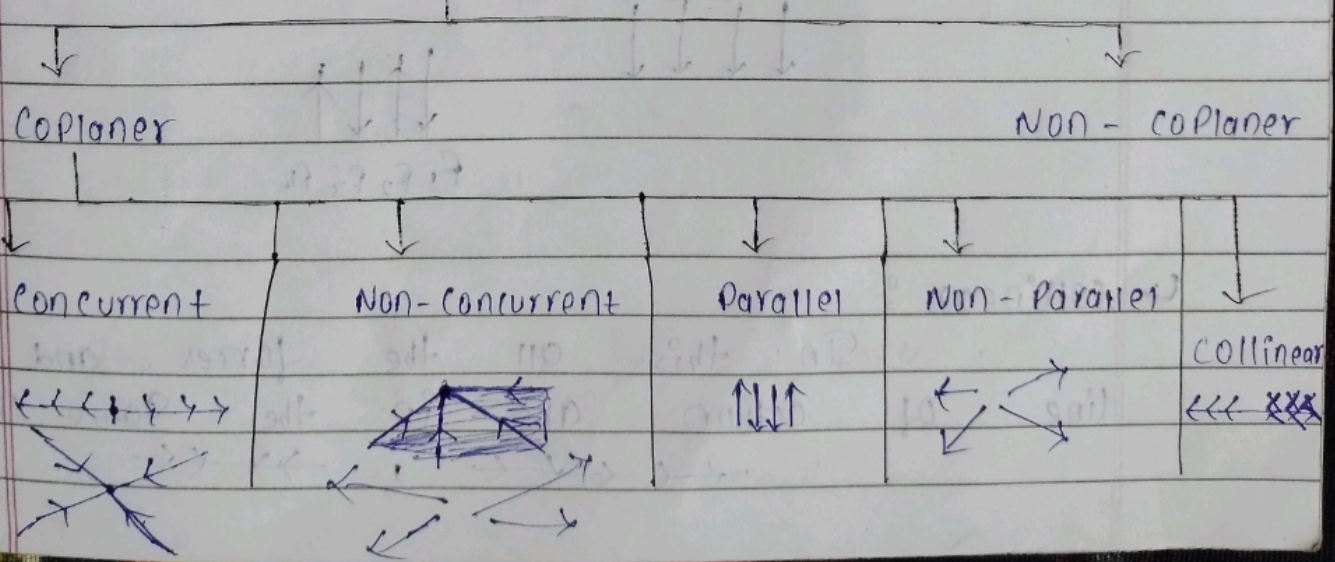 Coplaner Non - coplaner
Concurrent Non-concurrent Parallel Non-Parallel
Collinear